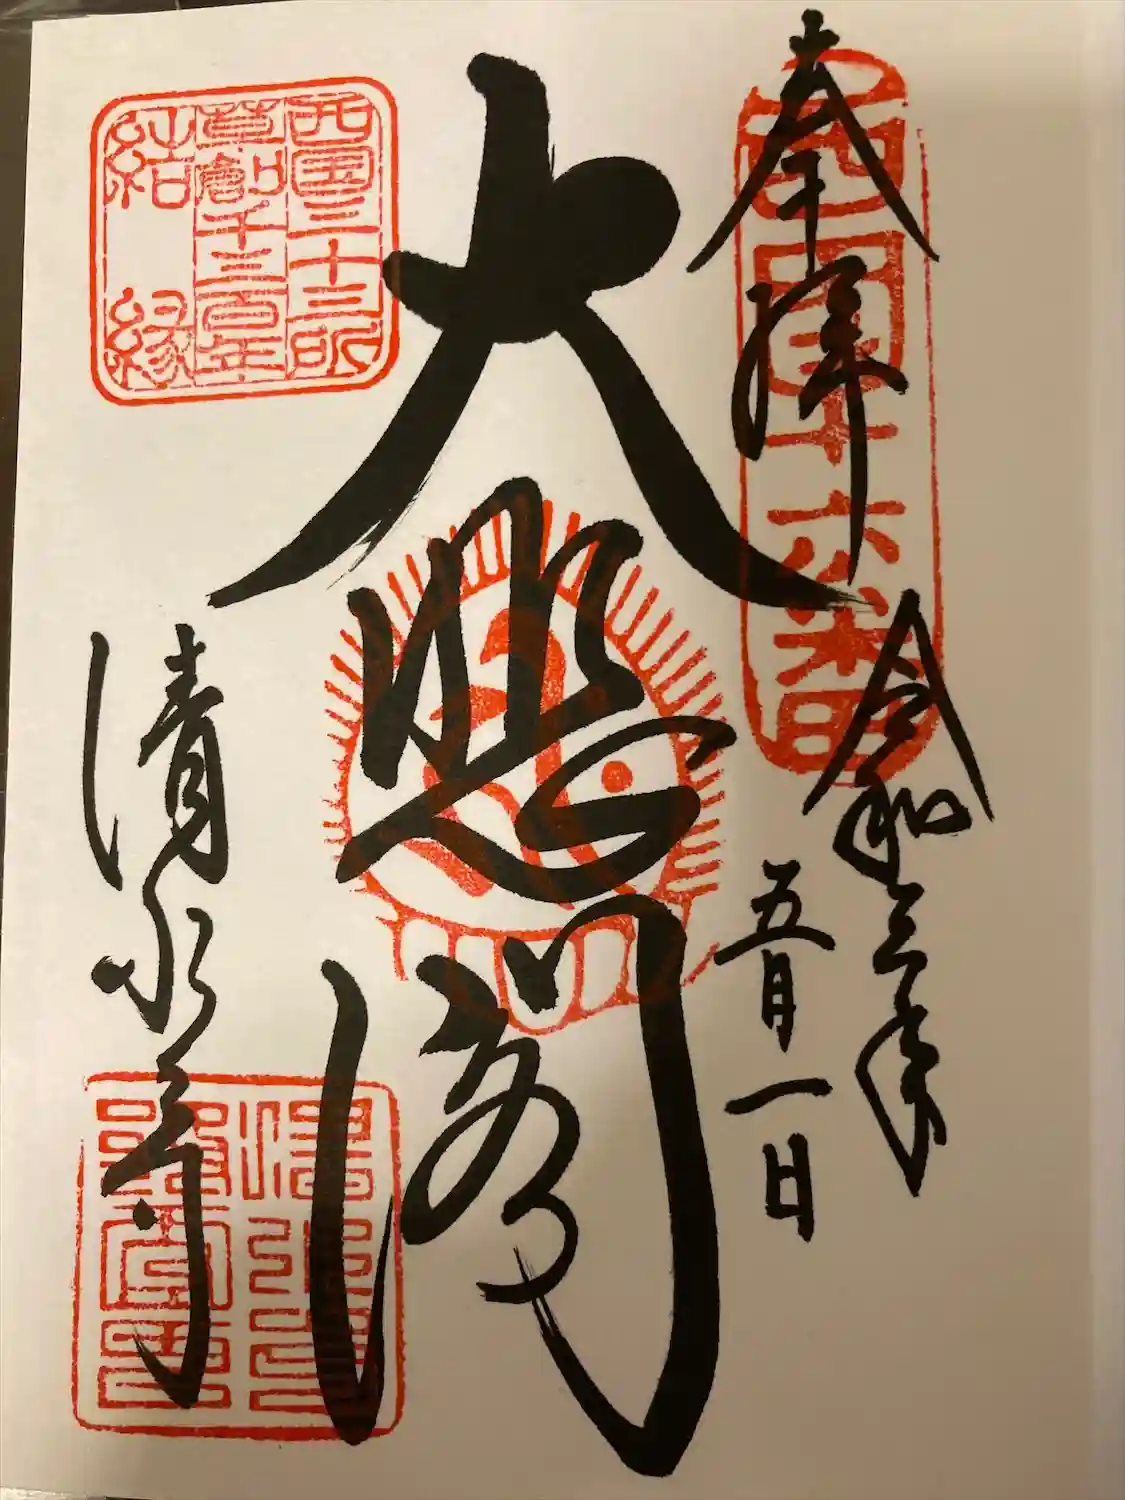 奉拝
西国十六番
令和三年
五月一日
大悲閣
清水寺
西国三十三所
草創千三百年
結縁